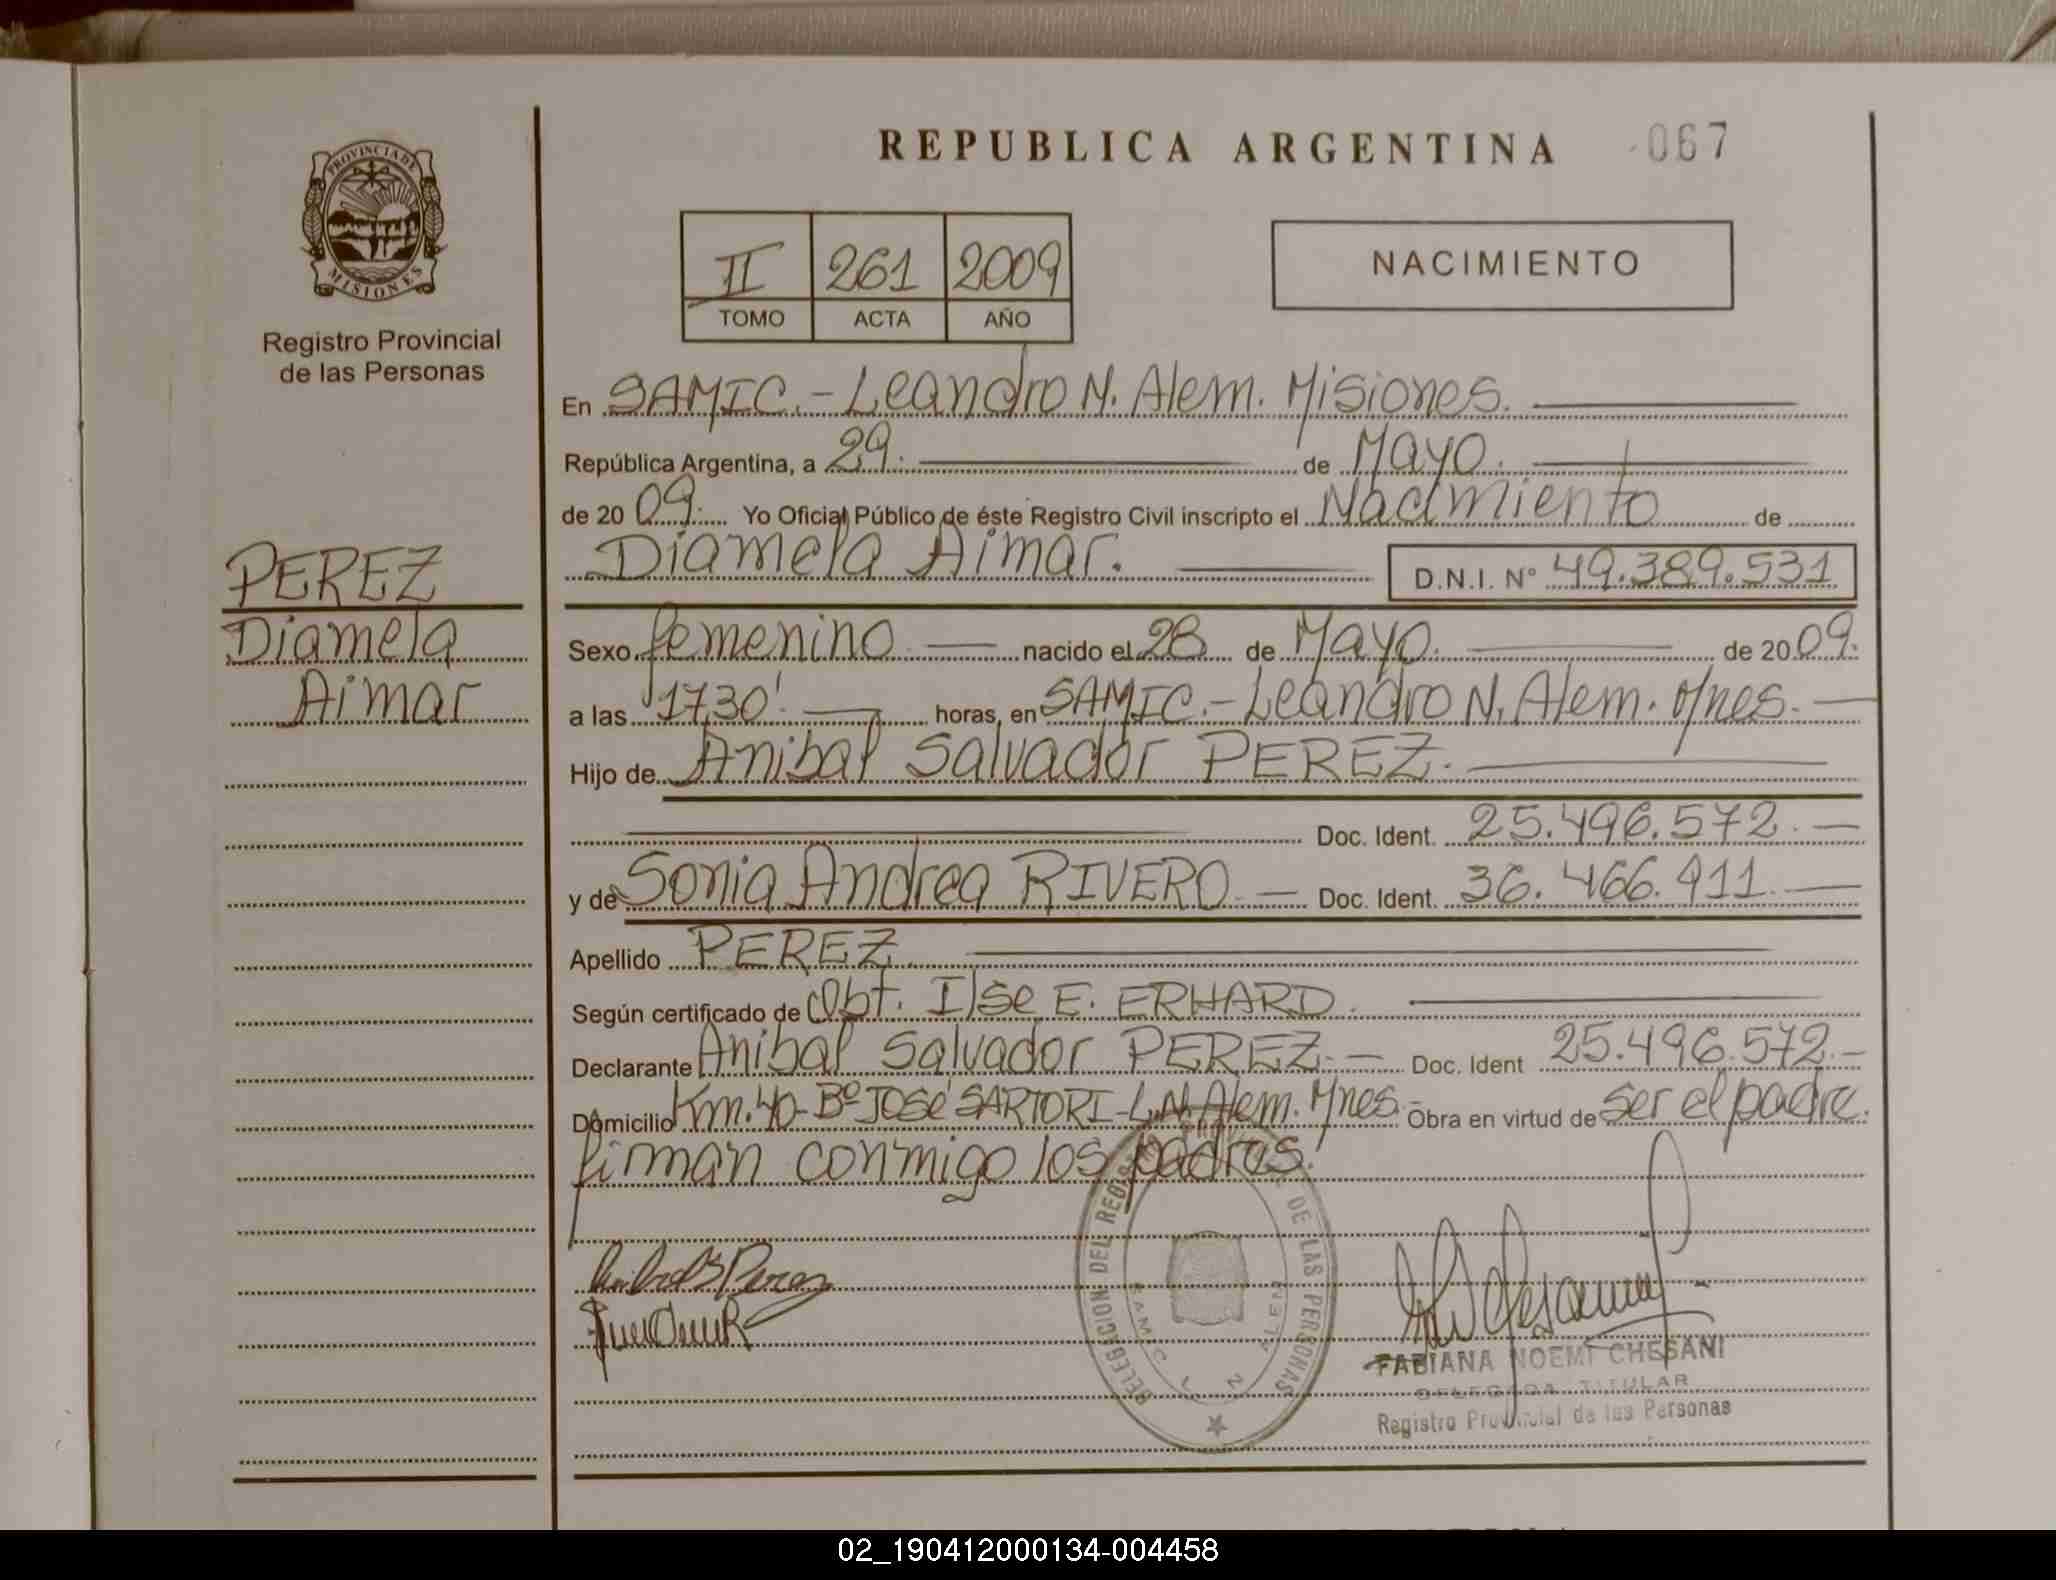 REPUBLICA ARGENTINA 067
PROVINCIA DE
MISIONES
Registro Provincial
de las Personas
II 261 2009
TOMO ACTA AÑO
NACIMIENTO
En SAMIC.- Leandro N. Alem. Misiones.
República Argentina, a 29. de Mayo.
de 20 09. Yo Oficial Público de éste Registro Civil inscripto el Nacimiento de
Diamela Aimar. D.N.I. Nº 49.389.531
PEREZ
Diamela
Aimar
Sexo femenino nacido el 28 de Mayo. de 20 09.
a las 17,30' horas, en SAMIC.- Leandro N. Alem. Mnes.
Hijo de Anibal Salvador PEREZ.
Doc. Ident. 25.496.572.
y de Sonia Andrea RIVERO Doc. Ident. 36.466.911.
Apellido PEREZ.
Según certificado de Obt. Ilse E. ERHARD.
Declarante Anibal Salvador PEREZ. Doc. Ident 25.496.572.
Domicilio Km. 40- Bº JOSÉ SARTORI- L.N. Alem. Mnes. Obra en virtud de ser el padre.
firman conmigo los padres.
DELEGACION DEL REGISTRO DE LAS PERSONAS
SAMIC L N ALEM
FABIANA NOEMI CHESANI
DELEGADA TITULAR
Registro Provincial de las Personas
02_190412000134-004458